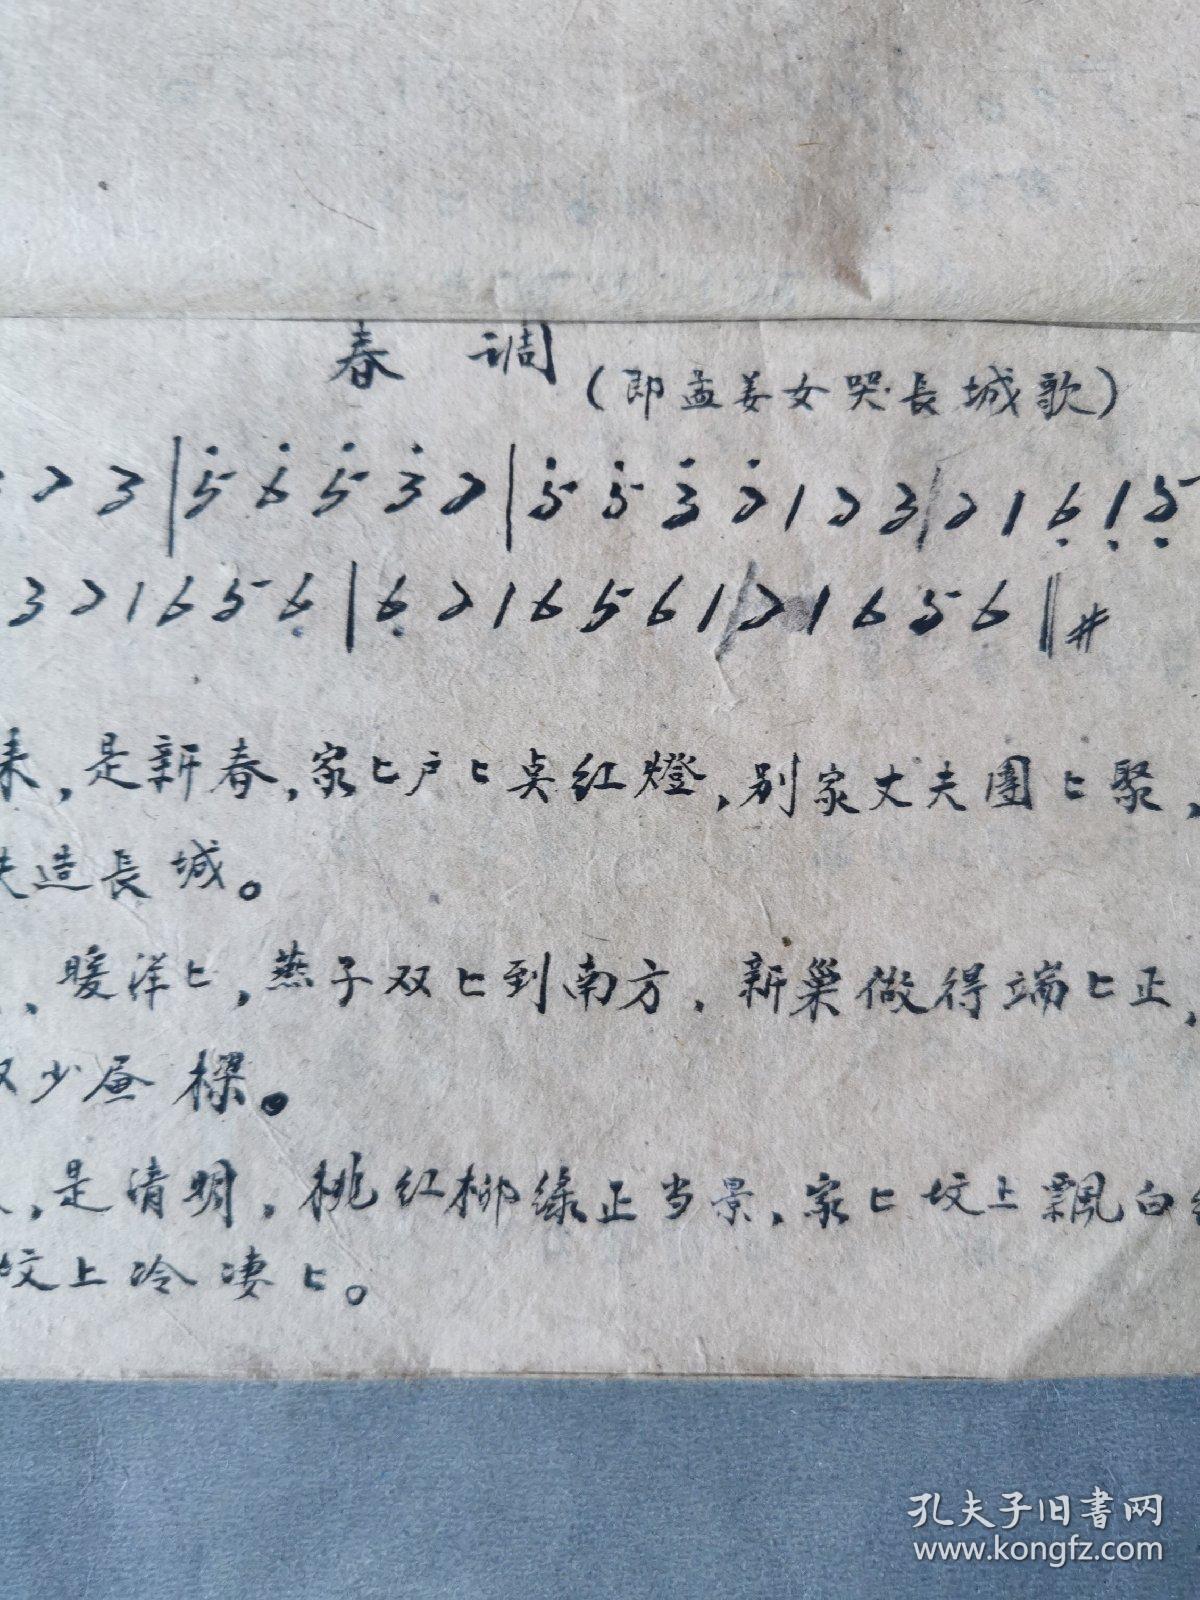 春调
(即孟姜女哭長城歌)
2 3 | 5̇ 6̇ 5̇ 3̇ 2 | 5̇ 5̇ 3̇ 2̇ 1 2 3 | 2 1 6̣ 1̣ 5̣
3 2 1 6 5 6̣ | 6̣ 2 1 6 5 6 1 | 2 1 6 5 6 ‖ #
来,是新春,家匕户匕点红燈,别家丈夫團匕聚,
夫造長城。
暖洋匕,燕子双匕到南方.新巢做得端匕正,
双少画樑。
,是清明,桃红柳绿正当景,家匕坟上飄白
坟上冷凄匕。
孔夫子旧书网
www.kongfz.com